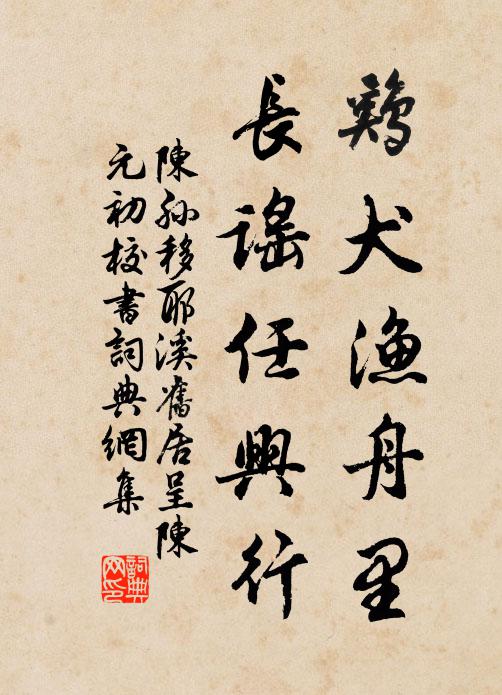 鷄犬漁舟里
長謡任興行
陳孫移耶溪舊居呈陳
元初校書詞典網集
詞典
网印